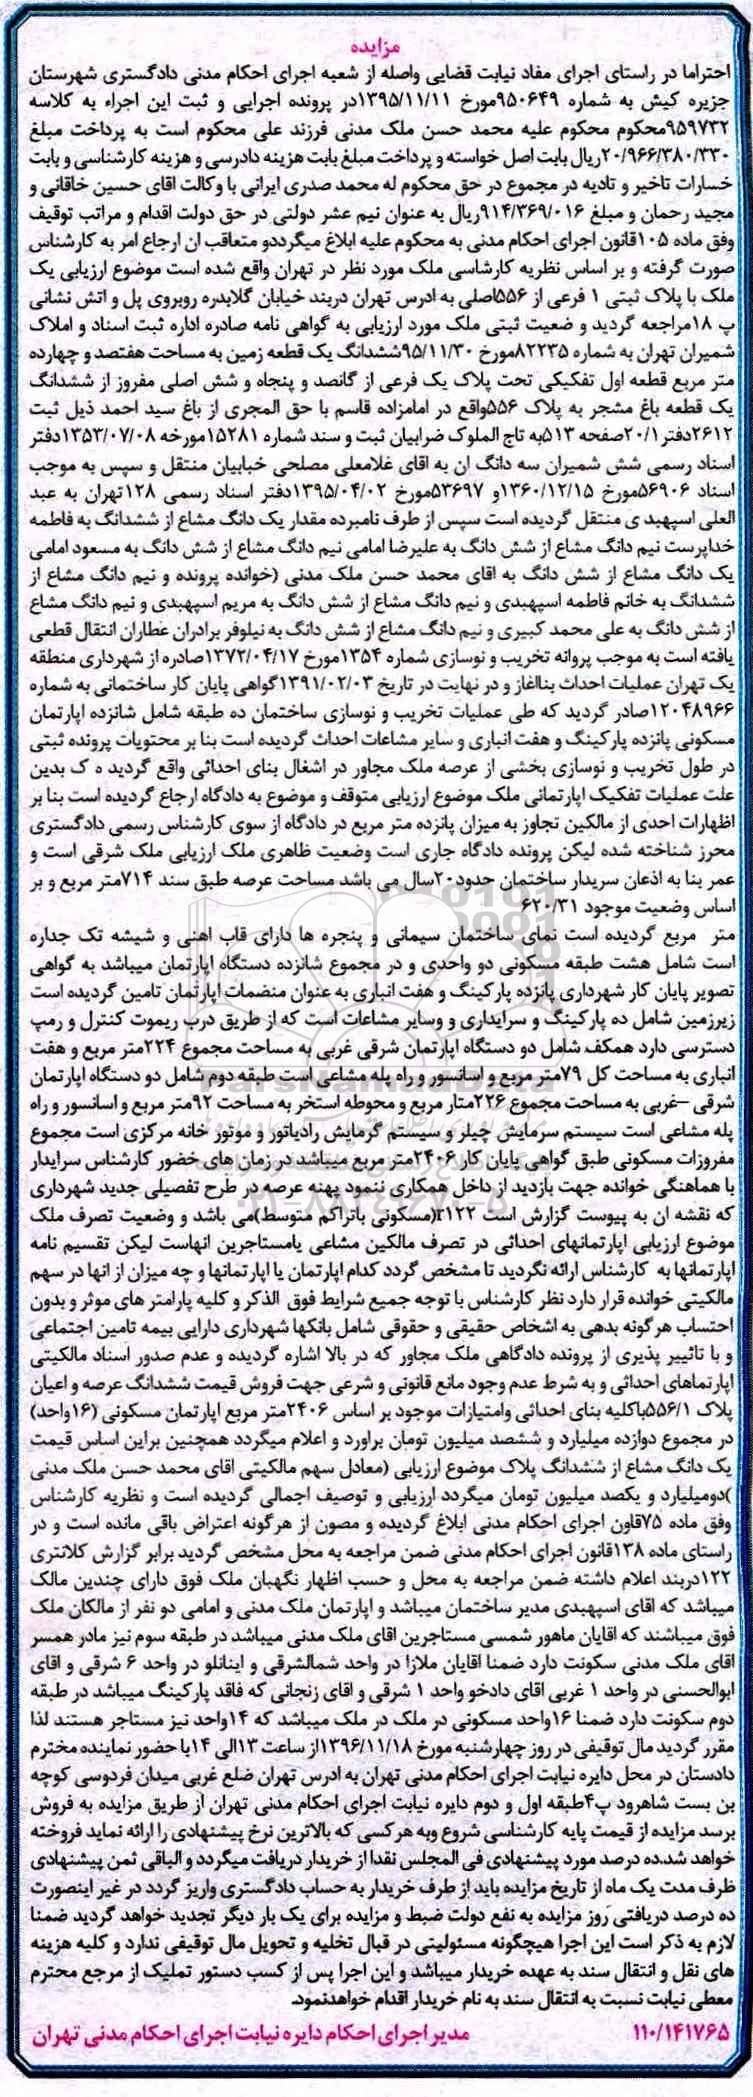 مزایده
احتراما در راستای اجرای مفاد نیابت قضایی واصله از شعبه اجرای احکام مدنی دادگستری شهرستان
جزیره کیش به شماره ۹۵۰۶۴۹مورخ ۱۳۹۵/۱۱/۱۱در پرونده اجرایی و ثبت این اجراء به کلاسه
۹۵۹۷۳۲محکوم محکوم علیه محمد حسن ملک مدنی فرزند علی محکوم است به پرداخت مبلغ
۲۰/۹۶۶/۳۸۰/۳۳۰ریال بابت اصل خواسته و پرداخت مبلغ بابت هزینه دادرسی و هزینه کارشناسی و بابت
خسارات تاخیر و تادیه در مجموع در حق محکوم له محمد صدری ایرانی با وکالت اقای حسین خاقانی و
مجید رحمان و مبلغ ۹۱۴/۳۶۹/۰۱۶ریال به عنوان نیم عشر دولتی در حق دولت اقدام و مراتب توقیف
وفق ماده ۱۰۵قانون اجرای احکام مدنی به محکوم علیه ابلاغ میگرددو متعاقب ان ارجاع امر به کارشناس
صورت گرفته و بر اساس نظریه کارشاسی ملک مورد نظر در تهران واقع شده است موضوع ارزیابی یک
ملک با پلاک ثبتی ۱ فرعی از ۵۵۶اصلی به ادرس تهران دربند خیابان گلابدره روبروی پل و اتش نشانی
پ ۱۸مراجعه گردید و ضعیت ثبتی ملک مورد ارزیابی به گواهی نامه صادره اداره ثبت اسناد و املاک
شمیران تهران به شماره ۸۲۲۳۵مورخ ۹۵/۱۱/۳۰ششدانگ یک قطعه زمین به مساحت هفتصد و چهارده
متر مربع قطعه اول تفکیکی تحت پلاک یک فرعی از گانصد و پنجاه و شش اصلی مفروز از ششدانگ
یک قطعه باغ مشجر به پلاک ۵۵۶واقع در امامزاده قاسم با حق المجری از باغ سید احمد ذیل ثبت
۲۶۱۲دفتر ۲۰/۱صفحه ۵۱۳به تاج الملوک ضرابیان ثبت و سند شماره ۱۵۲۸۱مورخه ۱۳۵۳/۰۷/۰۸دفتر
اسناد رسمی شش شمیران سه دانگ ان به اقای غلامعلی مصلحی خبابیان منتقل و سپس به موجب
اسناد ۵۶۹۰۶مورخ ۱۳۶۰/۱۲/۱۵و ۵۳۶۹۷مورخ ۱۳۹۵/۰۴/۰۲دفتر اسناد رسمی ۱۲۸تهران به عبد
العلی اسپهبد ی منتقل گردیده است سپس از طرف نامبرده مقدار یک دانگ مشاع از ششدانگ به فاطمه
خداپرست نیم دانگ مشاع از شش دانگ به علیرضا امامی نیم دانگ مشاع از شش دانگ به مسعود امامی
یک دانگ مشاع از شش دانگ به اقای محمد حسن ملک مدنی (خوانده پرونده و نیم دانگ مشاع از
ششدانگ به خانم فاطمه اسپهبدی و نیم دانگ مشاع از شش دانگ به مریم اسپهبدی و نیم دانگ مشاع
از شش دانگ به علی محمد کبیری و نیم دانگ مشاع از شش دانگ به نیلوفر برادران عطاران انتقال قطعی
یافته است به موجب پروانه تخریب و نوسازی شماره ۱۳۵۴مورخ ۱۳۷۲/۰۴/۱۷صادره از شهرداری منطقه
یک تهران عملیات احداث بنااغاز و در نهایت در تاریخ ۱۳۹۱/۰۲/۰۳گواهی پایان کار ساختمانی به شماره
۱۲۰۴۸۹۶۶صادر گردید که طی عملیات تخریب و نوسازی ساختمان ده طبقه شامل شانزده اپارتمان
مسکونی پانزده پارکینگ و هفت انباری و سایر مشاعات احداث گردیده است بنا بر محتویات پرونده ثبتی
در طول تخریب و نوسازی بخشی از عرصه ملک مجاور در اشغال بنای احداثی واقع گردید ه ک بدین
علت عملیات تفکیک اپارتمانی ملک موضوع ارزیابی متوقف و موضوع به دادگاه ارجاع گردیده است بنا بر
اظهارات احدی از مالکین تجاوز به میزان پانزده متر مربع در دادگاه از سوی کارشناس رسمی دادگستری
محرز شناخته شده لیکن پرونده دادگاه جاری است وضعیت ظاهری ملک ارزیابی ملک شرقی است و
عمر بنا به اذعان سریدار ساختمان حدود۲۰سال می باشد مساحت عرصه طبق سند ۷۱۴متر مربع و بر
اساس وضعیت موجود ۶۲۰/۳۱
متر مربع گردیده است نمای ساختمان سیمانی و پنجره ها دارای قاب اهنی و شیشه تک جداره
است شامل هشت طبقه مسکونی دو واحدی و در مجموع شانزده دستگاه اپارتمان میباشد به گواهی
تصویر پایان کار شهرداری پانزده پارکینگ و هفت انباری به عنوان منضمات اپارتمان تامین گردیده است
زیرزمین شامل ده پارکینگ و سرایداری و وسایر مشاعات است که از طریق درب ریموت کنترل و رمپ
دسترسی دارد همکف شامل دو دستگاه اپارتمان شرقی غربی به مساحت مجموع ۲۲۴متر مربع و هفت
انباری به مساحت کل ۷۹متر مربع و اسانسور و راه پله مشاعی است طبقه دوم شامل دو دستگاه اپارتمان
شرقی –غربی به مساحت مجموع ۲۲۶متار مربع و محوطه استخر به مساحت ۹۲متر مربع و اسانسور و راه
پله مشاعی است سیستم سرمایش چیلر و سیستم گرمایش رادیاتور و موتور خانه مرکزی است مجموع
مفروزات مسکونی طبق گواهی پایان کار ۲۴۰۶متر مربع میباشد در زمان های حضور کارشناس سرایدار
با هماهنگی خوانده جهت بازدید از داخل همکاری ننمود پهنه عرصه در طرح تفصیلی جدید شهرداری
که نقشه ان به پیوست گزارش است r۱۲۲(مسکونی باتراکم متوسط)می باشد و وضعیت تصرف ملک
موضوع ارزیابی اپارتمانهای احداثی در تصرف مالکین مشاعی یامستاجرین انهاست لیکن تقسیم نامه
اپارتمانها به کارشناس ارائه نگردید تا مشخص گردد کدام اپارتمان یا اپارتمانها و چه میزان از انها در سهم
مالکیتی خوانده قرار دارد نظر کارشناس با توجه جمیع شرایط فوق الذکر و کلیه پارامتر های موثر و بدون
احتساب هر گونه بدهی به اشخاص حقیقی و حقوقی شامل بانکها شهرداری دارایی بیمه تامین اجتماعی
و با تاثیر پذیری از پرونده دادگاهی ملک مجاور که در بالا اشاره گردیده و عدم صدور اسناد مالکیتی
اپارتماهای احداثی و به شرط عدم وجود مانع قانونی و شرعی جهت فروش قیمت ششدانگ عرصه و اعیان
پلاک ۵۵۶/۱باکلیه بنای احداثی وامتیازات موجود بر اساس ۲۴۰۶متر مربع اپارتمان مسکونی (۱۶واحد)
در مجموع دوازده میلیارد و ششصد میلیون تومان براورد و اعلام میگردد همچنین براین اساس قیمت
یک دانگ مشاع از ششدانگ پلاک موضوع ارزیابی (معادل سهم مالکیتی اقای محمد حسن ملک مدنی
)دومیلیارد و یکصد میلیون تومان میگردد ارزیابی و توصیف اجمالی گردیده است و نظریه کارشناس
وفق ماده ۷۵قاون اجرای احکام مدنی ابلاغ گردیده و مصون از هرگونه اعتراض باقی مانده است و در
راستای ماده ۱۳۸قانون اجرای احکام مدنی ضمن مراجعه به محل مشخص گردید برابر گزارش کلانتری
۱۲۲دربند اعلام داشته ضمن مراجعه به محل و حسب اظهار نگهبان ملک فوق دارای چندین مالک
میباشد که اقای اسپهبدی مدیر ساختمان میباشد و اپارتمان ملک مدنی و امامی دو نفر از مالکان ملک
فوق میباشند که اقایان ماهور شمسی مستاجرین اقای ملک مدنی میباشد در طبقه سوم نیز مادر همسر
اقای ملک مدنی سکونت دارد ضمنا اقایان ملازا در واحد شمالشرقی و اینانلو در واحد ۶ شرقی و اقای
ابوالحسنی در واحد ۱ غربی اقای دادخو واحد ۱ شرقی و اقای زنجانی که فاقد پارکینگ میباشد در طبقه
دوم سکونت دارد ضمنا ۱۶واحد مسکونی در ملک در ملک میباشد که ۱۴واحد نیز مستاجر هستند لذا
مقرر گردید مال توقیفی در روز چهارشنبه مورخ ۱۳۹۶/۱۱/۱۸از ساعت ۱۳الی ۱۴با حضور نماینده محترم
دادستان در محل دایره نیابت اجرای احکام مدنی تهران به ادرس تهران ضلع غربی میدان فردوسی کوچه
بن بست شاهرود پ۴طبقه اول و دوم دایره نیابت اجرای احکام مدنی تهران از طریق مزایده به فروش
برسد مزایده از قیمت پایه کارشناسی شروع وبه هر کسی که بالاترین نرخ پیشنهادی را ارائه نماید فروخته
خواهد شد.ده درصد مورد پیشنهادی فی المجلس نقدا از خریدار دریافت میگردد و الباقی ثمن پیشنهادی
ظرف مدت یک ماه از تاریخ مزایده باید از طرف خریدار به حساب دادگستری واریز گردد در غیر اینصورت
ده درصد دریافتی روز مزایده به نفع دولت ضبط و مزایده برای یک بار دیگر تجدید خواهد گردید ضمنا
لازم به ذکر است این اجرا هیچگونه مسئولیتی در قبال تخلیه و تحویل مال توقیفی ندارد و کلیه هزینه
های نقل و انتقال سند به عهده خریدار میباشد و این اجرا پس از کسب دستور تملیک از مرجع محترم
معطی نیابت نسبت به انتقال سند به نام خریدار اقدام خواهدنمود.
۱۱۰/۱۴۱۷۶۵ مدیر اجرای احکام دایره نیابت اجرای احکام مدنی تهران
ParsNamadData